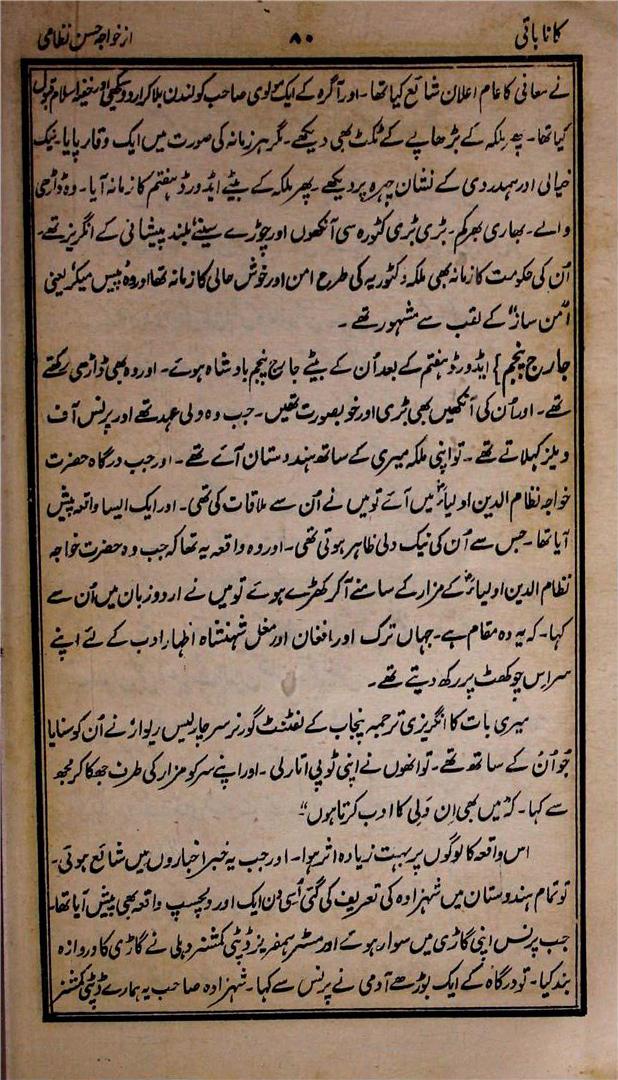 کانا باتی
۸۰
از خواجہ حسن نظامی
نے معافی کا عام اعلان شائع کیا تھا۔ اور آگرہ کے ایک مولوی صاحب کو لندن بلا کر اردو سیکھی اور خفیہ اسلام قبول
کیا تھا۔ پھر ملکہ کے بڑھاپے کے ٹکٹ بھی دیکھے۔ مگر ہر زمانہ کی صورت میں ایک وقار پایا۔ نیک
خیالی اور ہمدردی کے نشان چہرہ پر دیکھے۔ پھر ملکہ کے بیٹے ایڈورڈ ہفتم کا زمانہ آیا۔ وہ ڈاڑھی
والے۔ بھاری بھرکم۔ بڑی بڑی کٹورہ سی آنکھوں اور چوڑے سینے بلند پیشانی کے انگریز تھے۔
اُن کی حکومت کا زمانہ بھی ملکہ وکٹوریہ کی طرح امن اور خوش حالی کا زمانہ تھا اور وہ پیس میکر یعنی
"امن ساز" کے لقب سے مشہور تھے۔
جارج پنجم } ایڈورڈ ہفتم کے بعد اُن کے بیٹے جارج پنجم بادشاہ ہوئے۔ اور وہ بھی ڈاڑھی رکھتے
تھے۔ اور اُن کی آنکھیں بھی بڑی اور خوبصورت تھیں۔ جب وہ ولی عہد تھے اور پرنس آف
ویلز کہلاتے تھے۔ تو اپنی ملکہ میری کے ساتھ ہندوستان آئے تھے۔ اور جب درگاہ حضرت
خواجہ نظام الدین اولیاءؒ میں آئے تو میں نے اُن سے ملاقات کی تھی۔ اور ایک ایسا واقعہ پیش
آیا تھا۔ جس سے اُن کی نیک دلی ظاہر ہوتی تھی۔ اور وہ واقعہ یہ تھا کہ جب وہ حضرت خواجہ
نظام الدین اولیاءؒ کے مزار کے سامنے آکر کھڑے ہوئے تو میں نے اردو زبان میں اُن سے
کہا۔ کہ یہ وہ مقام ہے۔ جہاں ترک اور افغان اور مغل شہنشاہ اظہار ادب کے لئے اپنے
سر اِس چوکھٹ پر رکھ دیتے تھے۔
میری بات کا انگریزی ترجمہ پنجاب کے لفٹننٹ گورنر سر چارلیس ریواز نے اُن کو سنایا
جو اُن کے ساتھ تھے۔ تو انھوں نے اپنی ٹوپی اتار لی۔ اور اپنے سر کو مزار کی طرف جھکا کر مجھ
سے کہا۔ کہ "میں بھی اِن وَلی کا ادب کرتا ہوں"
اس واقعہ کا لوگوں پر بہت زیادہ اثر ہوا۔ اور جب یہ خبر اخباروں میں شائع ہوئی۔
تو تمام ہندوستان میں شہزادہ کی تعریف کی گئی اُسی دن ایک اور دلچسپ واقعہ بھی پیش آیا تھا۔
جب پرنس اپنی گاڑی میں سوار ہوئے اور مسٹر ہمفریز ڈپٹی کمشنر دہلی نے گاڑی کا دروازہ
بند کیا۔ تو درگاہ کے ایک بوڑھے آدمی نے پرنس سے کہا۔ شہزادہ صاحب یہ ہمارے ڈپٹی کمشنر